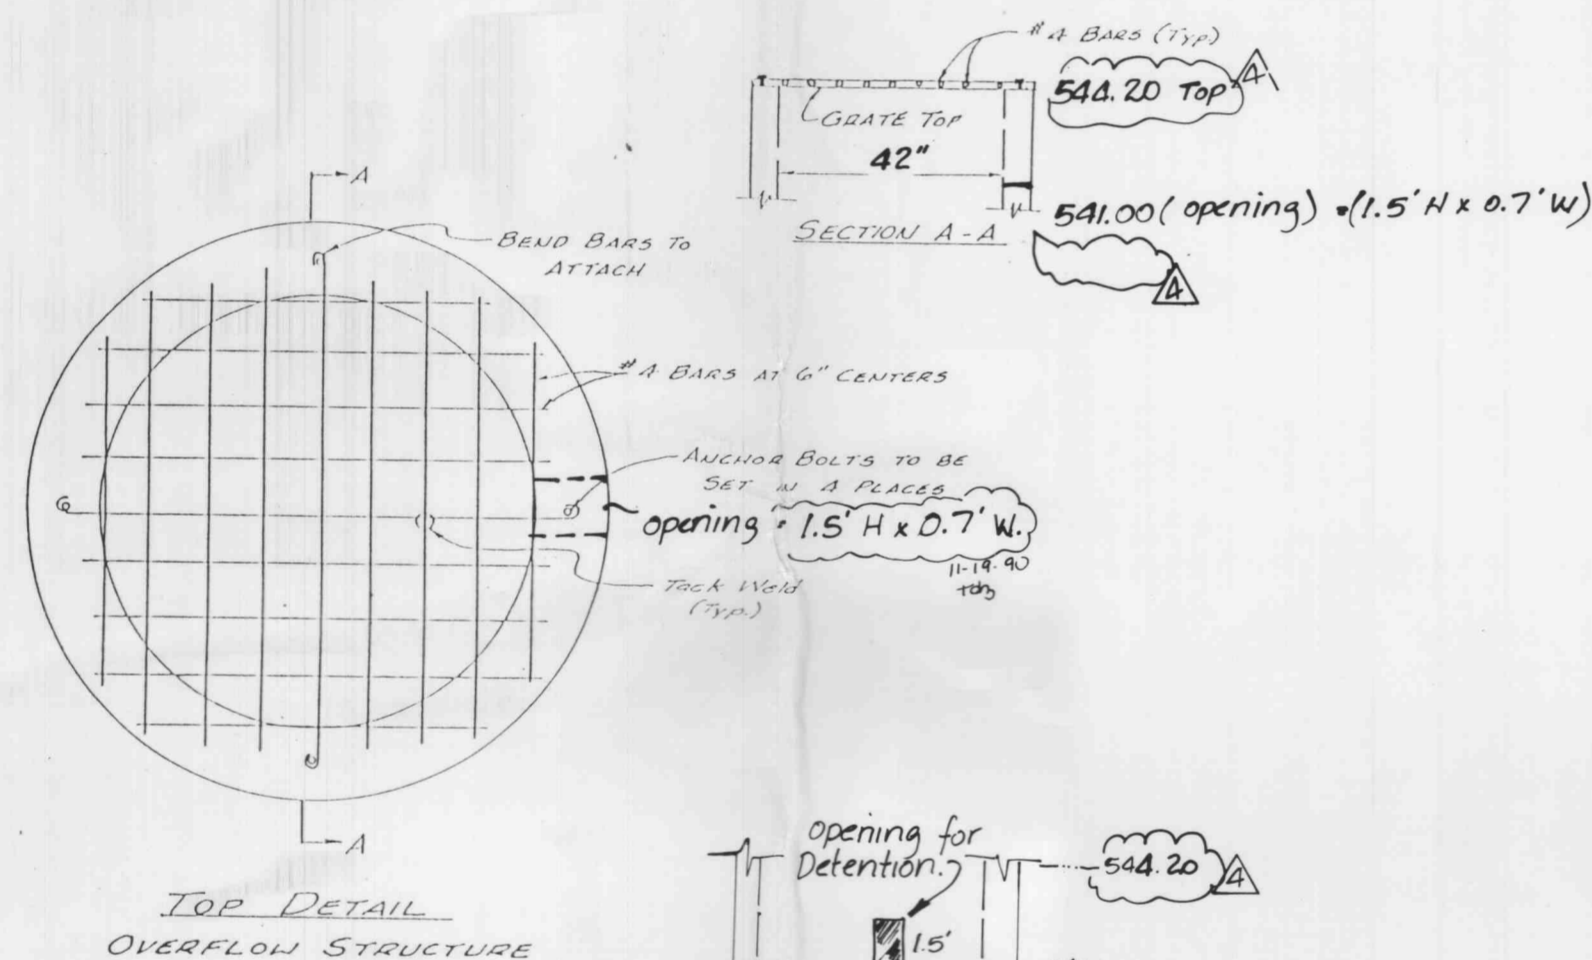 # 4 BARS (TYP)
544.20 TOP
4
GRATE TOP
42"
541.00 (opening) • (1.5' H x 0.7' W)
SECTION A-A
4
A
BEND BARS TO
ATTACH
# 4 BARS AT 6" CENTERS
ANCHOR BOLTS TO BE
SET IN 4 PLACES
opening • 1.5' H x 0.7' W.
11-19-90
Tack Weld
(Typ.)
A
TOP DETAIL
OVERFLOW STRUCTURE
opening for
Detention.
544.20
4
1.5'